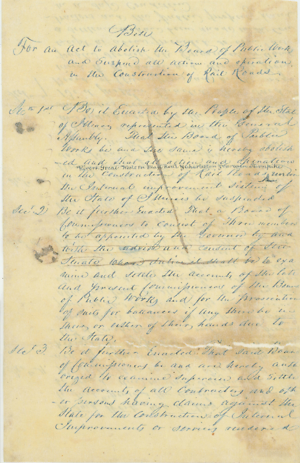 Bill
For an Act to abolish the Board of Public Works
and suspend all action and operations
in the Construction of Rail Roads
Sec 1st Be it Enacted by the People of the State
of Illinois represented in the General
Assembly. That the Board of Public
Works be and the same is hereby abolish
ed and that all action and operations
in the Construction of Rail Roads under
the Internal improvement System of
the State of Illinois be suspended
Sec. 2 Be it further Enacted That a Board of
Commissioners to Consist of Three members
to be appointed by the Governor by and
with the advice and Consent of the
Senate shall be to exa
mine and settle the accounts of the late
and present Commissioners of the Board
of Public Works and for the prosecution
of suits for balances if any there be
them, or either of them, found due to
the State.
Sec. 3 Be it further Enacted That said Board
of Commissioners be and are hereby autho
rized to examine supervise and settle
the accounts of all Contractors and oth
er persons having claims against the
State for the Construction of Internal
Improvements or services rendered